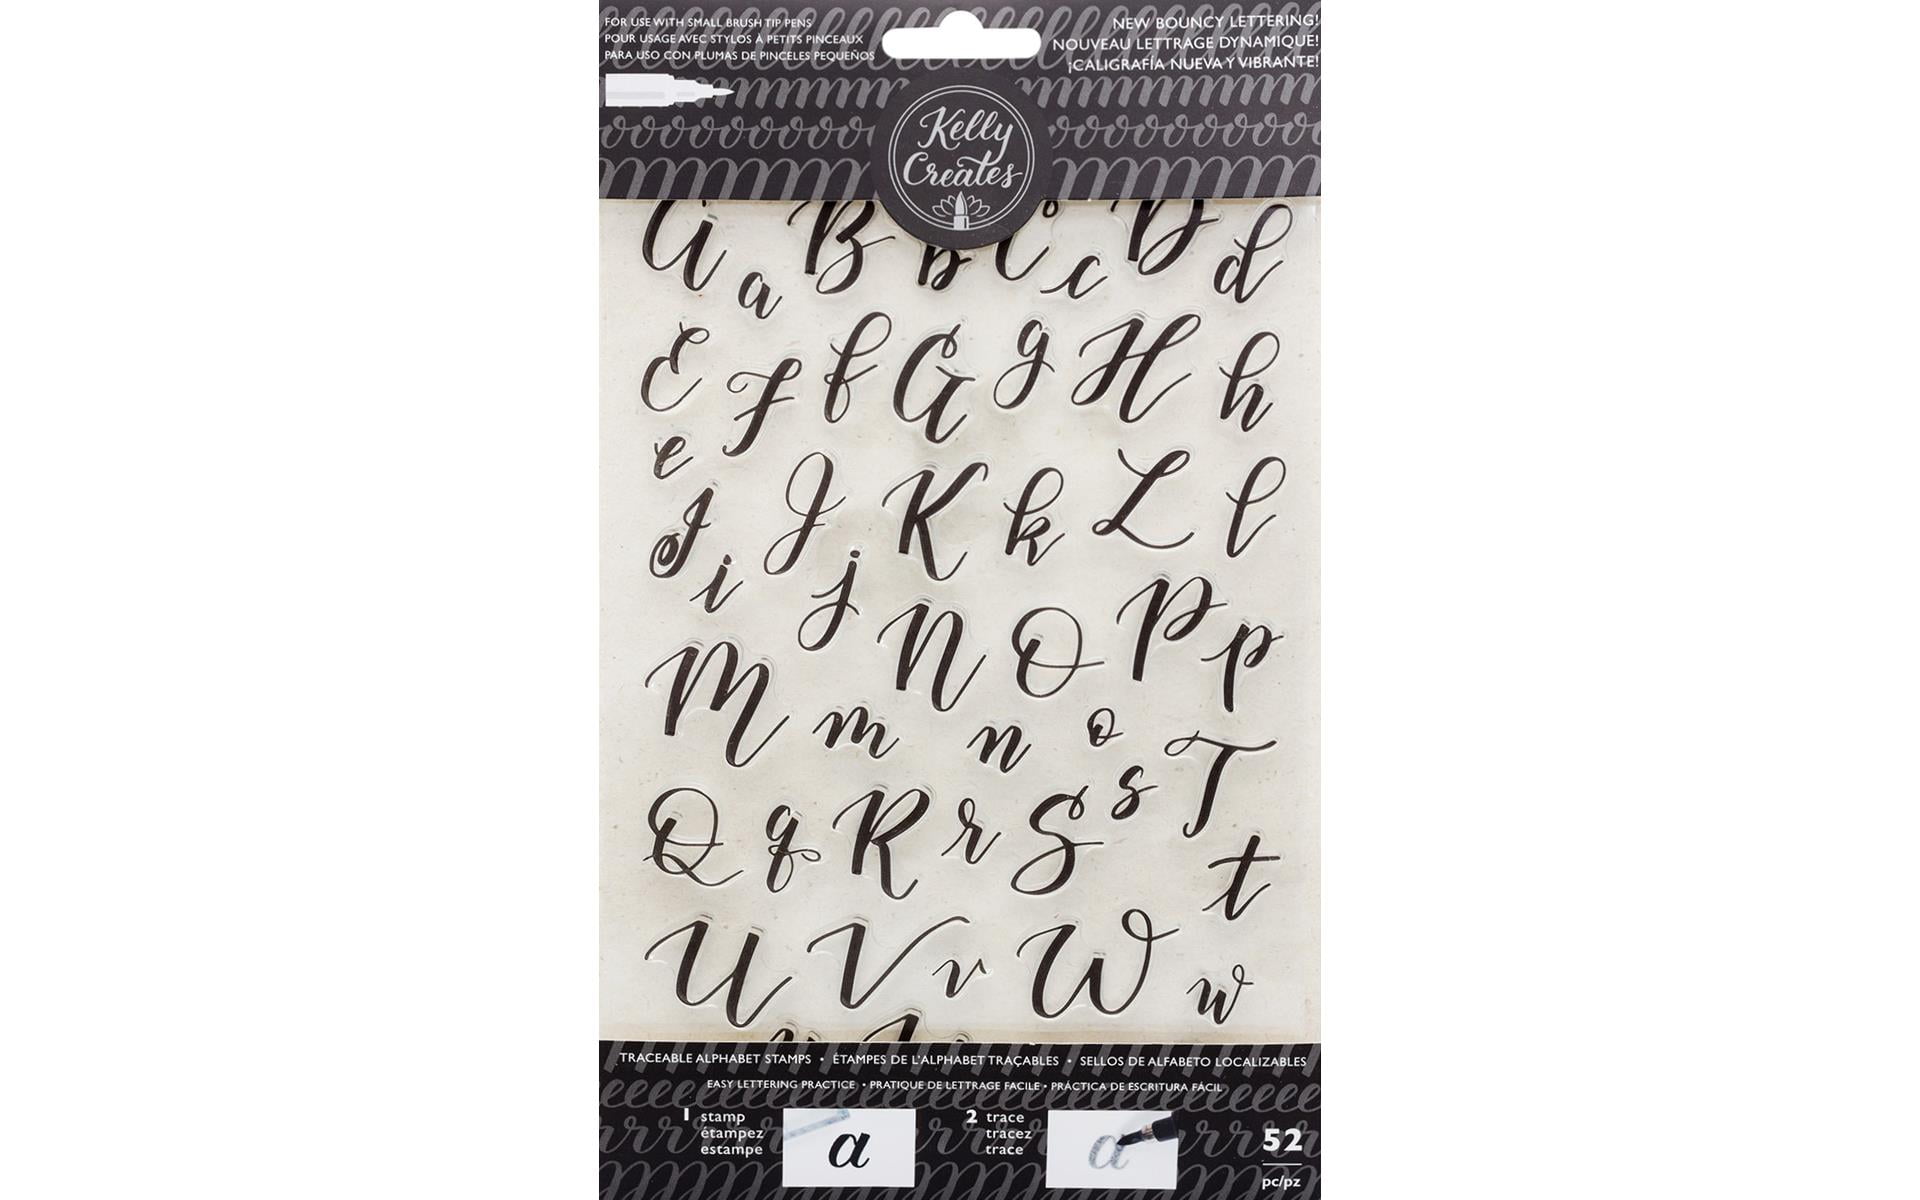 FOR USE WITH SMALL BRUSH TIP PENS
POUR USAGE AVEC STYLOS À PETITS PINCEAUX
PARA USO CON PLUMAS DE PINCELES PEQUEÑOS
NEW BOUNCY LETTERING!
NOUVEAU LETTRAGE DYNAMIQUE!
¡CALIGRAFÍA NUEVA Y VIBRANTE!
Kelly
Creates
A a B b C c D d
E F f G g H h
e
I J K k L l
i j
M N O P p
m n o
Q q R r S s T
t
U V v W w
TRACEABLE ALPHABET STAMPS • ÉTAMPES DE L'ALPHABET TRAÇABLES • SELLOS DE ALFABETO LOCALIZABLES
EASY LETTERING PRACTICE • PRATIQUE DE LETTRAGE FACILE • PRÁCTICA DE ESCRITURA FÁCIL
1 stamp
étampez
estampe
a
2 trace
tracez
trace
a
52
pc/pz